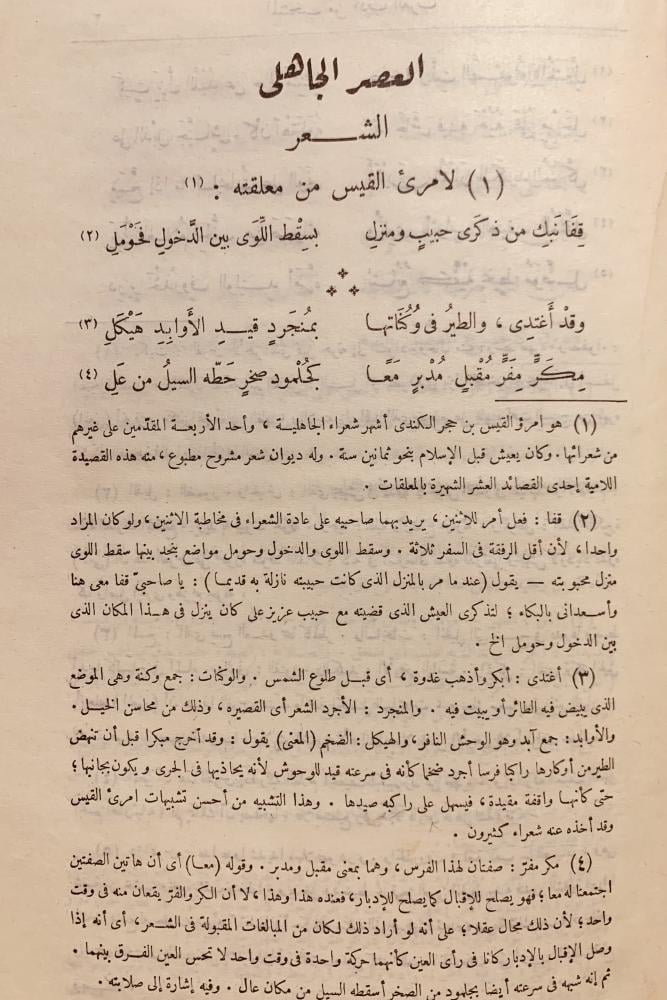 العصر الجاهلى
الشعر
(١) لامرئ القيس من معلقته : (١)
قِفَا نَبكِ مِن ذكرَى حبيبٍ ومنزلِ بسِقْط اللِّوَى بين الدَّخولِ فَحَوْمَلِ (٢)
وقدْ أَغتدِى ، والطيرُ فى وُكُنَاتها بمُنجَردٍ قيدِ الأَوابِدِ هَيْكَلِ (٣)
مِكَرٍّ مِفَرٍّ مُقْبلٍ مُدْبرٍ مَعًا بَكُلْمودِ صخرٍ حَطَّه السيلُ من عَلِ (٤)
(١) هو امرؤ القيس بن حجر الكندى أشهر شعراء الجاهلية ، وأحد الأربعة المقدّمين على غيرهم
من شعرائها . وكان يعيش قبل الإسلام بنحو ثمانين سنة . وله ديوان شعر مشروح مطبوع ، منه هذه القصيدة
اللامية إحدى القصائد العشر الشهيرة بالمعلقات .
(٢) قفا : فعل أمر للاثنين ، يريد بهما صاحبيه على عادة الشعراء فى مخاطبة الاثنين ، ولو كان المراد
واحدا ، لأن أقل الرفقة فى السفر ثلاثة . وسقط اللوى والدخول وحومل مواضع بنجد بينها سقط اللوى
منزل محبوبته — يقول (عند ما مر بالمنزل الذى كانت حبيبته نازلة به قديما) : يا صاحبىّ قفا معى هنا
وأسعدانى بالبكاء ؛ لتذكرى العيش الذى قضيته مع حبيب عزيز على كان ينزل فى هذا المكان الذى
بين الدخول وحومل الخ .
(٣) أغتدى : أبكر وأذهب غدوة ، أى قبل طلوع الشمس . والوكنات : جمع وكنة وهى الموضع
الذى يبيض فيه الطائر أو يبيت فيه . والمنجرد : الأجرد الشعر أى القصيره ، وذلك من محاسن الخيل .
والأوابد : جمع آبد وهو الوحش النافر ، والهيكل : الضخم (المعنى) يقول : وقد أخرج مبكرا قبل أن تنهض
الطير من أوكارها راكبا فرسا أجرد ضخما كأنه فى سرعته قيد للوحوش لأنه يحاذيها فى الجرى و يكون بجانبها ؛
حتى كأنها واقفة مقيدة ، فيسهل على راكبه صيدها . وهذا التشبيه من أحسن تشبيهات امرئ القيس
وقد أخذه عنه شعراء كثيرون .
(٤) مكر مفرّ : صفتان لهذا الفرس ، وهما بمعنى مقبل ومدبر . وقوله (معا) أى أن هاتين الصفتين
اجتمعتا له معا ؛ فهو يصلح للإقبال كما يصلح للإدبار ، فعنده هذا وهذا ، لا أن الكر والفرّ يقعان منه فى وقت
واحد ؛ لأن ذلك محال عقلا ؛ على أنه لو أراد ذلك لكان من المبالغات المقبولة فى الشعر ، أى أنه إذا
وصل الإقبال بالإدبار كانا فى رأى العين كأنهما حركة واحدة فى وقت واحد لا تحس العين الفرق بينهما .
ثم إنه شبهه فى سرعته أيضا بجلمود من الصخر أسقطه السيل من مكان عال . وفيه إشارة إلى صلابته .